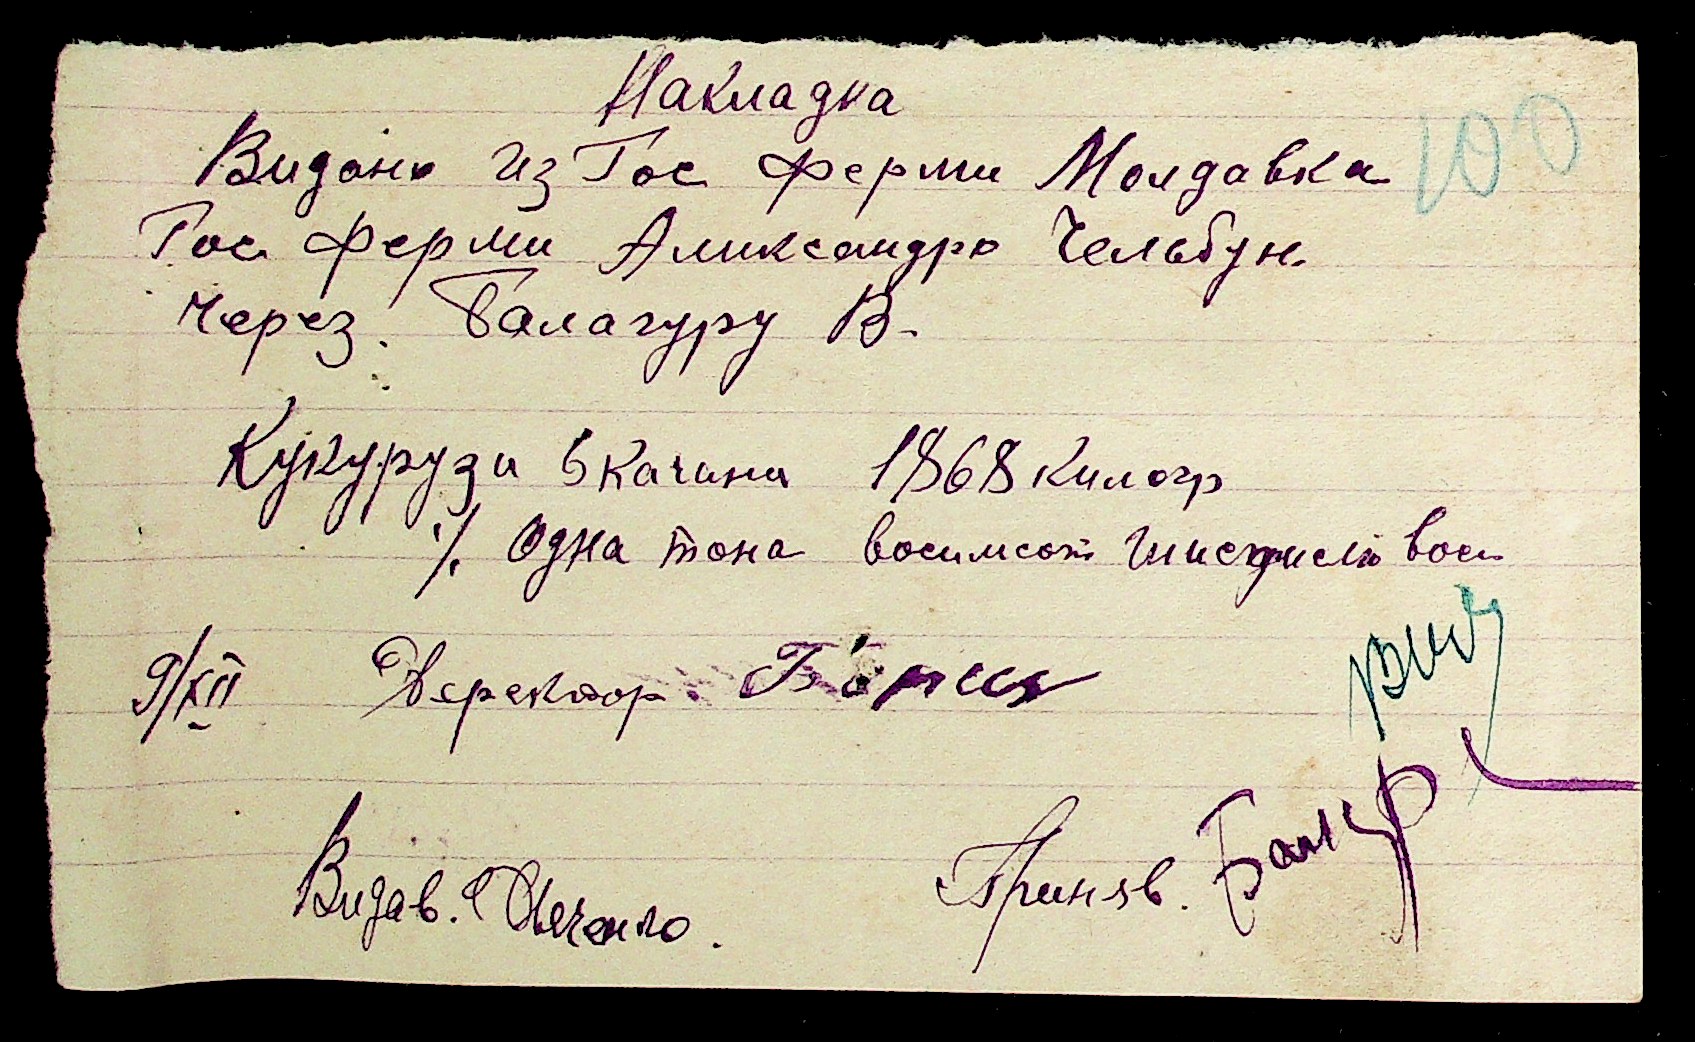 Накладна
100
Видано из Гос ферми Молдавка
Гос ферми Александро Чельбун.
Через. Балагуру В.
Кукурузи в качани 1868 килогр
⁒ Одна тона восимсот шисдисят вос
9/XII Деректор.
Видав.
Приняв.